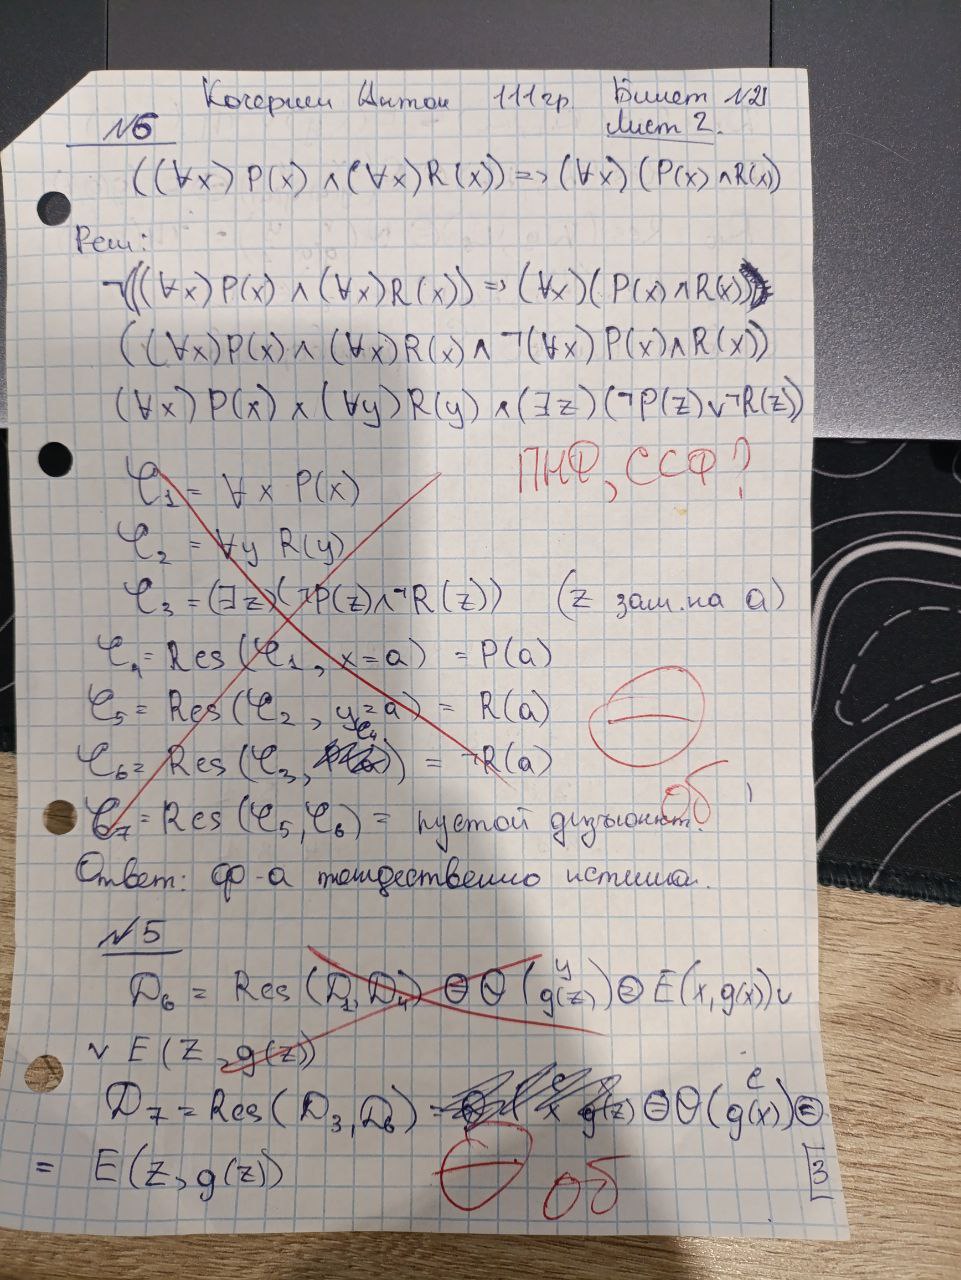 Кочерши Антон 111гр. Билет №21
№6 Лист 2.
((∀x) P(x) ∧ (∀x) R(x)) => (∀x) (P(x) ∧ R(x))
Реш:
¬(((∀x) P(x) ∧ (∀x) R(x)) => (∀x) (P(x) ∧ R(x)))
((∀x) P(x) ∧ (∀x) R(x) ∧ ¬(∀x) P(x) ∧ R(x))
(∀x) P(x) ∧ (∀y) R(y) ∧ (∃z) (¬P(z) ∨ ¬R(z))
ПНФ, ССФ?
φ₁ = ∀x P(x)
φ₂ = ∀y R(y)
φ₃ = (∃z) (¬P(z) ∧ ¬R(z)) (z зам. на a)
φ₄ = Res (φ₁, x=a) = P(a)
φ₅ = Res (φ₂, y=a) = R(a)
φ₆ = Res (φ₃, φ₄) = ¬R(a)
φ₇ = Res (φ₅, φ₆) = пустой дизъюнкт.
Об
Ответ: ф-а тождественно истинна.
№5
D₆ = Res (D₁, D₄) ⊖ Θ (y g(z)) ⊜ E(x, g(x)) ∨
∨ E(z, g(z))
D₇ = Res (D₃, D₆) = ⊖ Θ (c g(x)) ⊜
= E(z, g(z))
Об
3